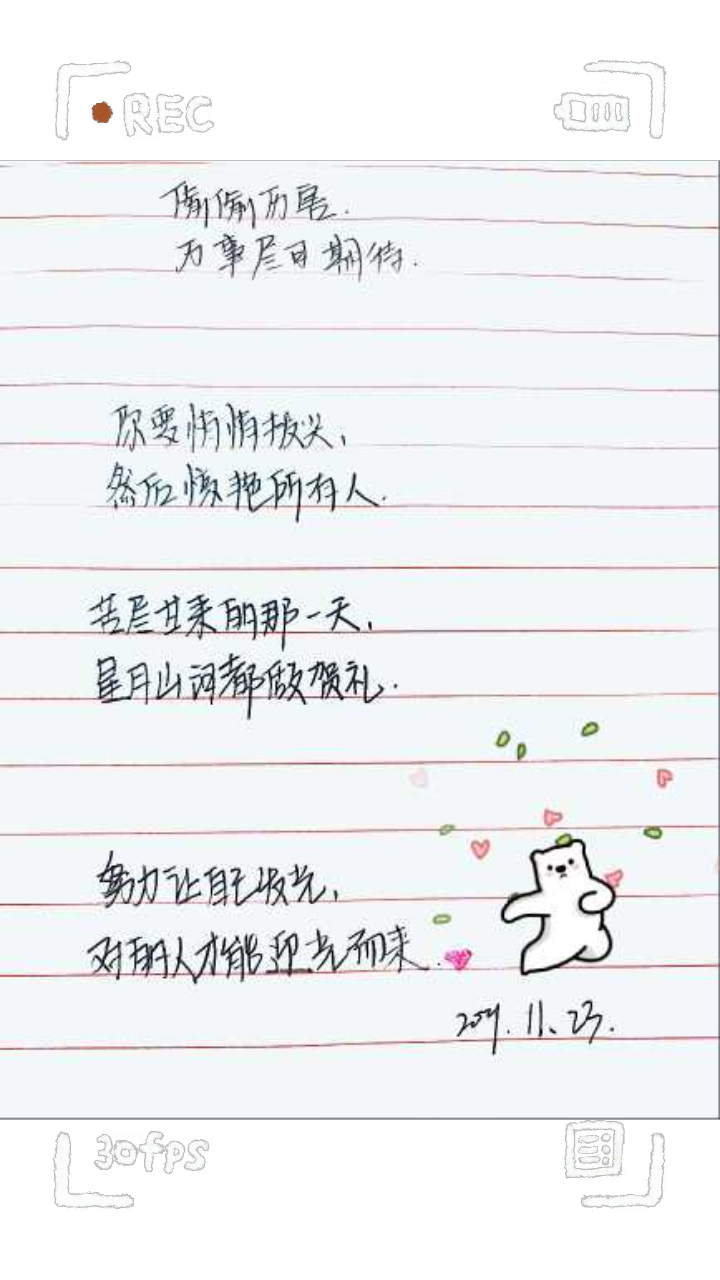 REC
偷偷厉害.
万事尽可期待.
你要悄悄拔尖,
然后惊艳所有人.
苦尽甘来的那一天,
星月山河都做贺礼.
努力让自己发光,
对的人才能迎光而来.
11.23.
30fps